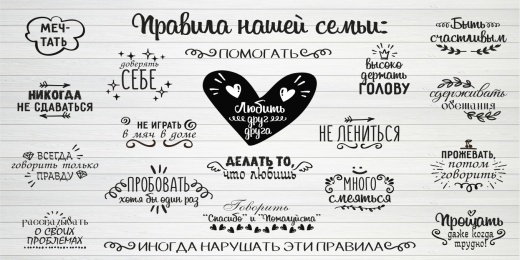 Правила нашей семьи:
МЕЧ-
ТАТЬ
ПОМОГАТЬ
Быть
счастливым
доверять
СЕБЕ
высоко
держать
ГОЛОВУ
НИКОГДА
НЕ СДАВАТЬСЯ
Любить
друг
друга
сдерживать
обещания
НЕ ИГРАТЬ
в мяч в доме
НЕ ЛЕНИТЬСЯ
ВСЕГДА
говорить только
ПРАВДУ
ДЕЛАТЬ ТО,
что любишь
ПРОЖЕВАТЬ,
потом
говорить
ПРОБОВАТЬ
хотя бы один раз
МНОГО
смеяться
Говорить
"Спасибо" и "Пожалуйста"
рассказывать
О СВОИХ
ПРОБЛЕМАХ
Прощать
даже когда
трудно!
ИНОГДА НАРУШАТЬ ЭТИ ПРАВИЛА